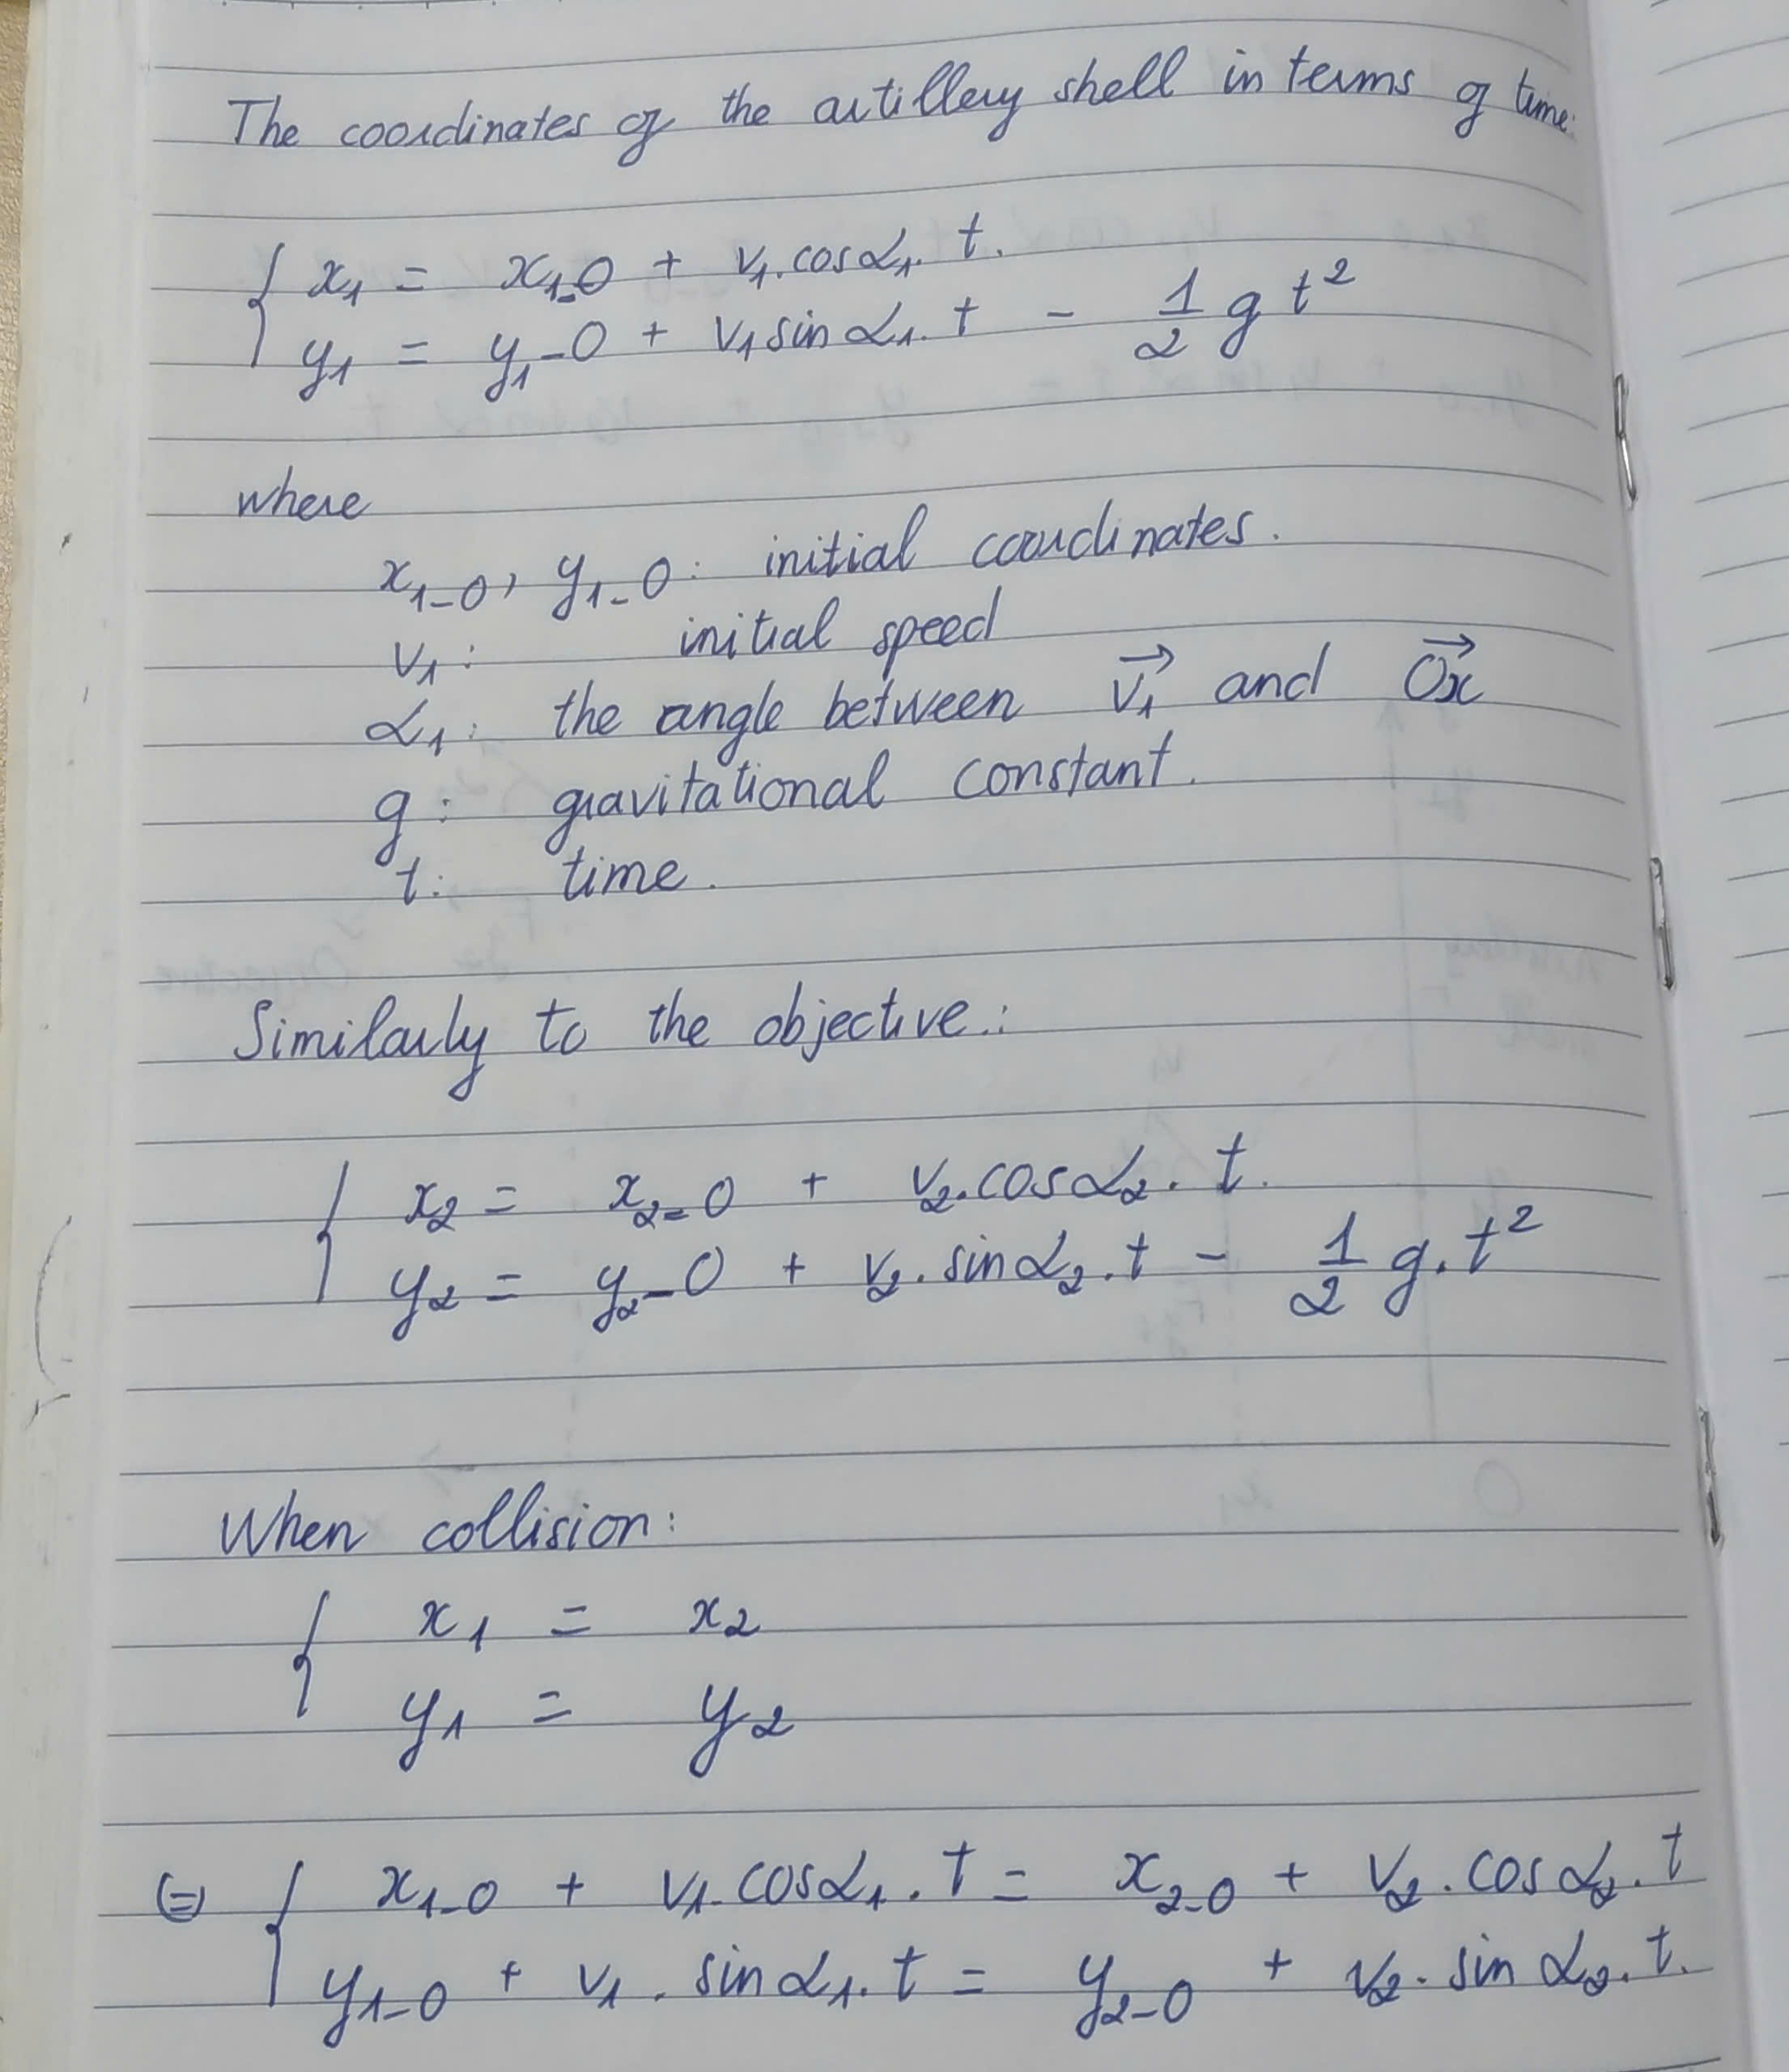 The coordinates of the artillery shell in terms of time:
x₁ = x₁₋0 + v₁.cosα₁. t.
y₁ = y₁₋0 + v₁ sinα₁. t - 1/2 g t²
where
x₁₋₀, y₁₋₀: initial coordinates.
v₁: initial speed
α₁: the angle between v₁→ and Ox→
g: gravitational constant.
t: time.
Similarly to the objective:
x₂ = x₂₋0 + v₂.cosα₂. t.
y₂ = y₂₋0 + v₂. sinα₂.t - 1/2 g.t²
When collision:
x₁ = x₂
y₁ = y₂
⇔ x₁₋₀ + v₁.cosα₁. t = x₂₋₀ + v₂.cosα₂. t
y₁₋₀ + v₁. sinα₁. t = y₂₋₀ + v₂. sinα₂. t.